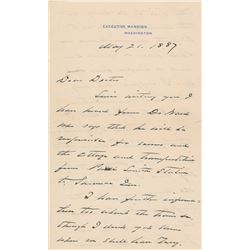 EXECUTIVE MANSION,
WASHINGTON.
May 21. 1887
Dear Doctor
Since writing you I
have heard from Dr Ward
who says that he will be
responsible for rooms and
the cottage and transportation
from Smith Station
to Saranac Inn.
I have further informa-
tion too about the
though I don't yet know
when we shall leave